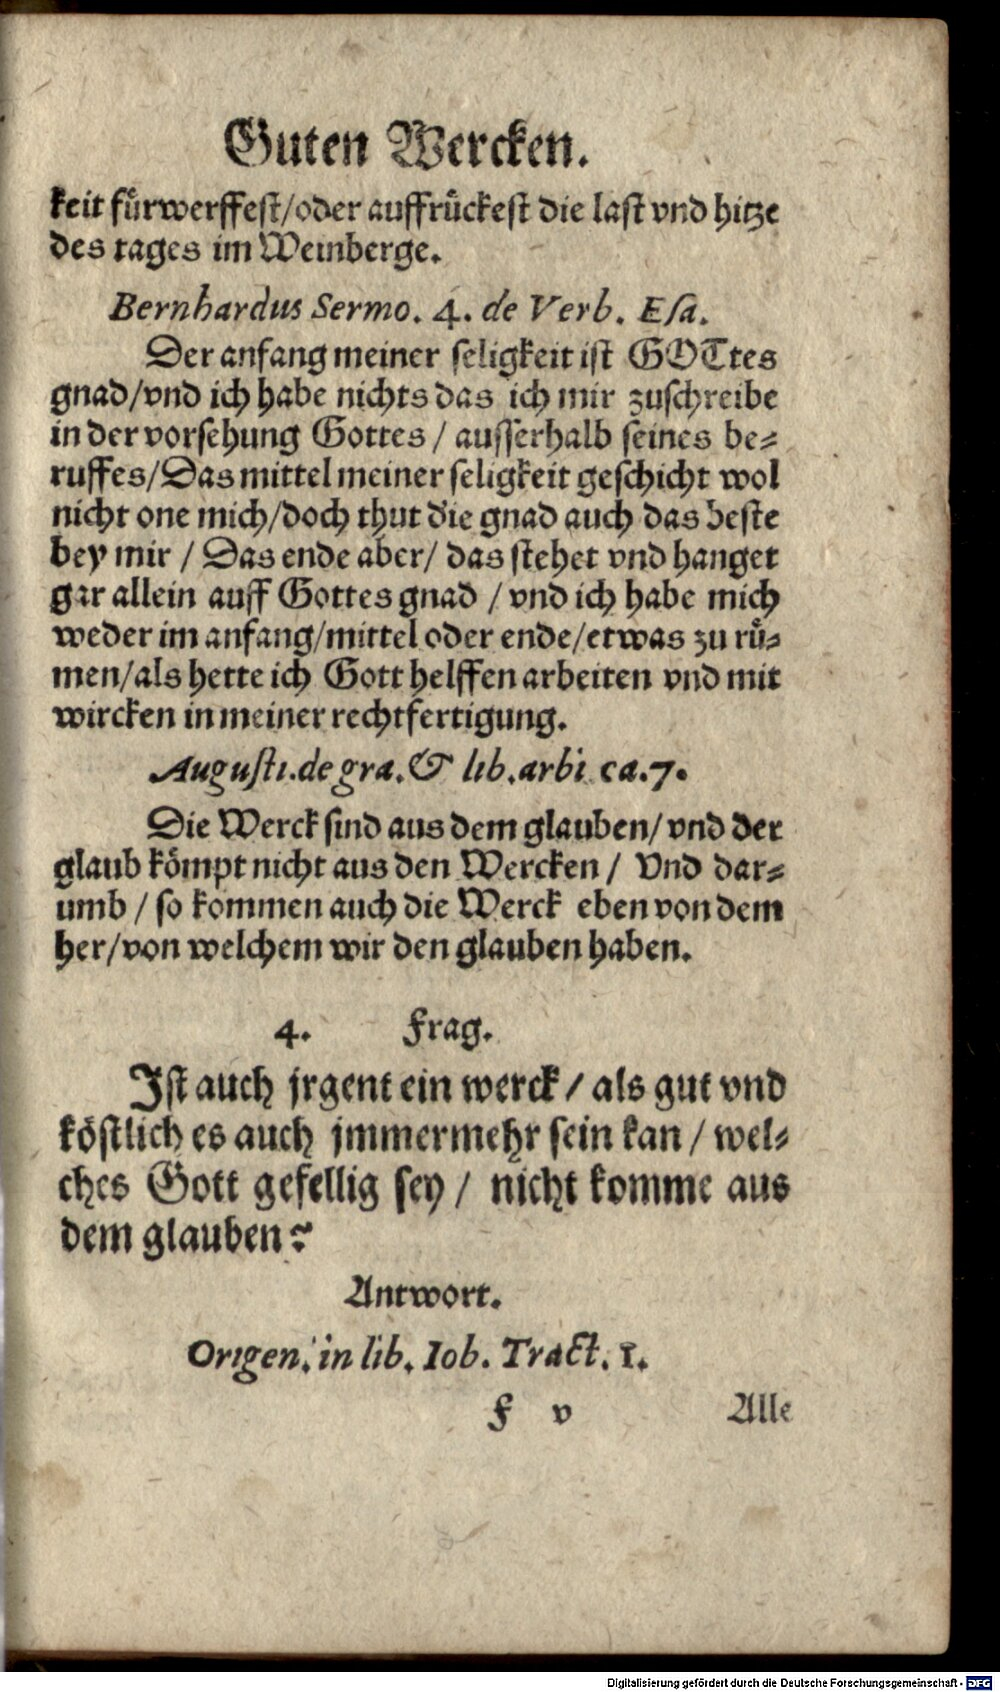 Guten Wercken.
keit fürwerffest/oder auffrückest die last vnd hitze
des tages im Weinberge.
Bernhardus Sermo. 4. de Verb. Esa.
Der anfang meiner seligkeit ist GOTtes
gnad/vnd ich habe nichts das ich mir zuschreibe
in der vorsehung Gottes / ausserhalb seines be-
ruffes/Das mittel meiner seligkeit geschicht wol
nicht one mich/doch thut die gnad auch das beste
bey mir / Das ende aber/ das stehet vnd hanget
gar allein auff Gottes gnad / vnd ich habe mich
weder im anfang/mittel oder ende/etwas zu rü-
men/als hette ich Gott helffen arbeiten vnd mit
wircken in meiner rechtfertigung.
Augusti. de gra. & lib. arbi ca. 7.
Die Werck sind aus dem glauben/ vnd der
glaub kömpt nicht aus den Wercken / Vnd dar-
umb / so kommen auch die Werck eben von dem
her/von welchem wir den glauben haben.
4. Frag.
Ist auch jrgent ein werck / als gut vnd
köstlich es auch jmmermehr sein kan / wel-
ches Gott gefellig sey / nicht komme aus
dem glauben?
Antwort.
Origen. in lib. Iob. Tract. 1.
F v Alle
Digitalisierung gefördert durch die Deutsche Forschungsgemeinschaft - DFG